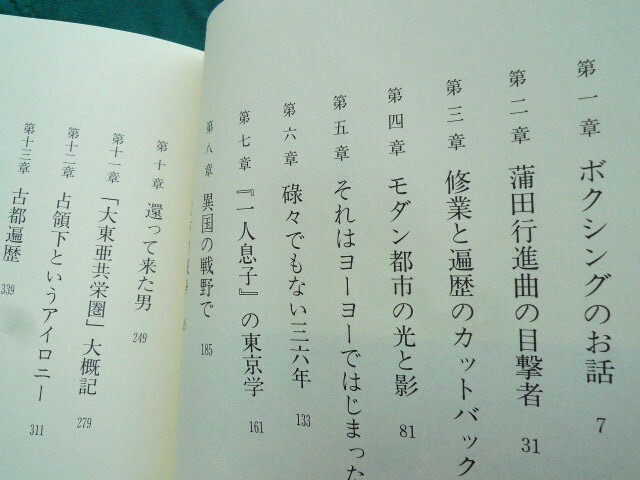 第一章 ボクシングのお話 7
第二章 蒲田行進曲の目撃者 31
第三章 修業と遍歴のカットバック
第四章 モダン都市の光と影 81
第五章 それはヨーヨーではじまった
第六章 碌々でもない三六年 133
第七章 『一人息子』の東京学 161
第八章 異国の戦野で 185
第十章 還って来た男 249
第十一章 「大東亜共栄圏」大概記 279
第十二章 占領下というアイロニー 311
第十三章 古都遍歴 339